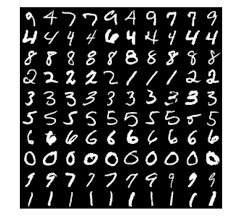 9 4 7 7 9 4 9 7 7 9
4 4 4 4 6 4 4 4 4 4
8 8 8 8 8 8 8 8 8 8
2 2 2 2 2 1 1 1 2 2
3 3 3 3 3 3 3 3 3 3
5 5 5 5 5 5 5 5 5 5
6 6 6 6 6 6 6 6 6 6
0 0 0 0 0 0 0 0 0 0
9 9 7 7 7 7 9 9 9 9
1 1 1 1 1 1 1 1 1 1